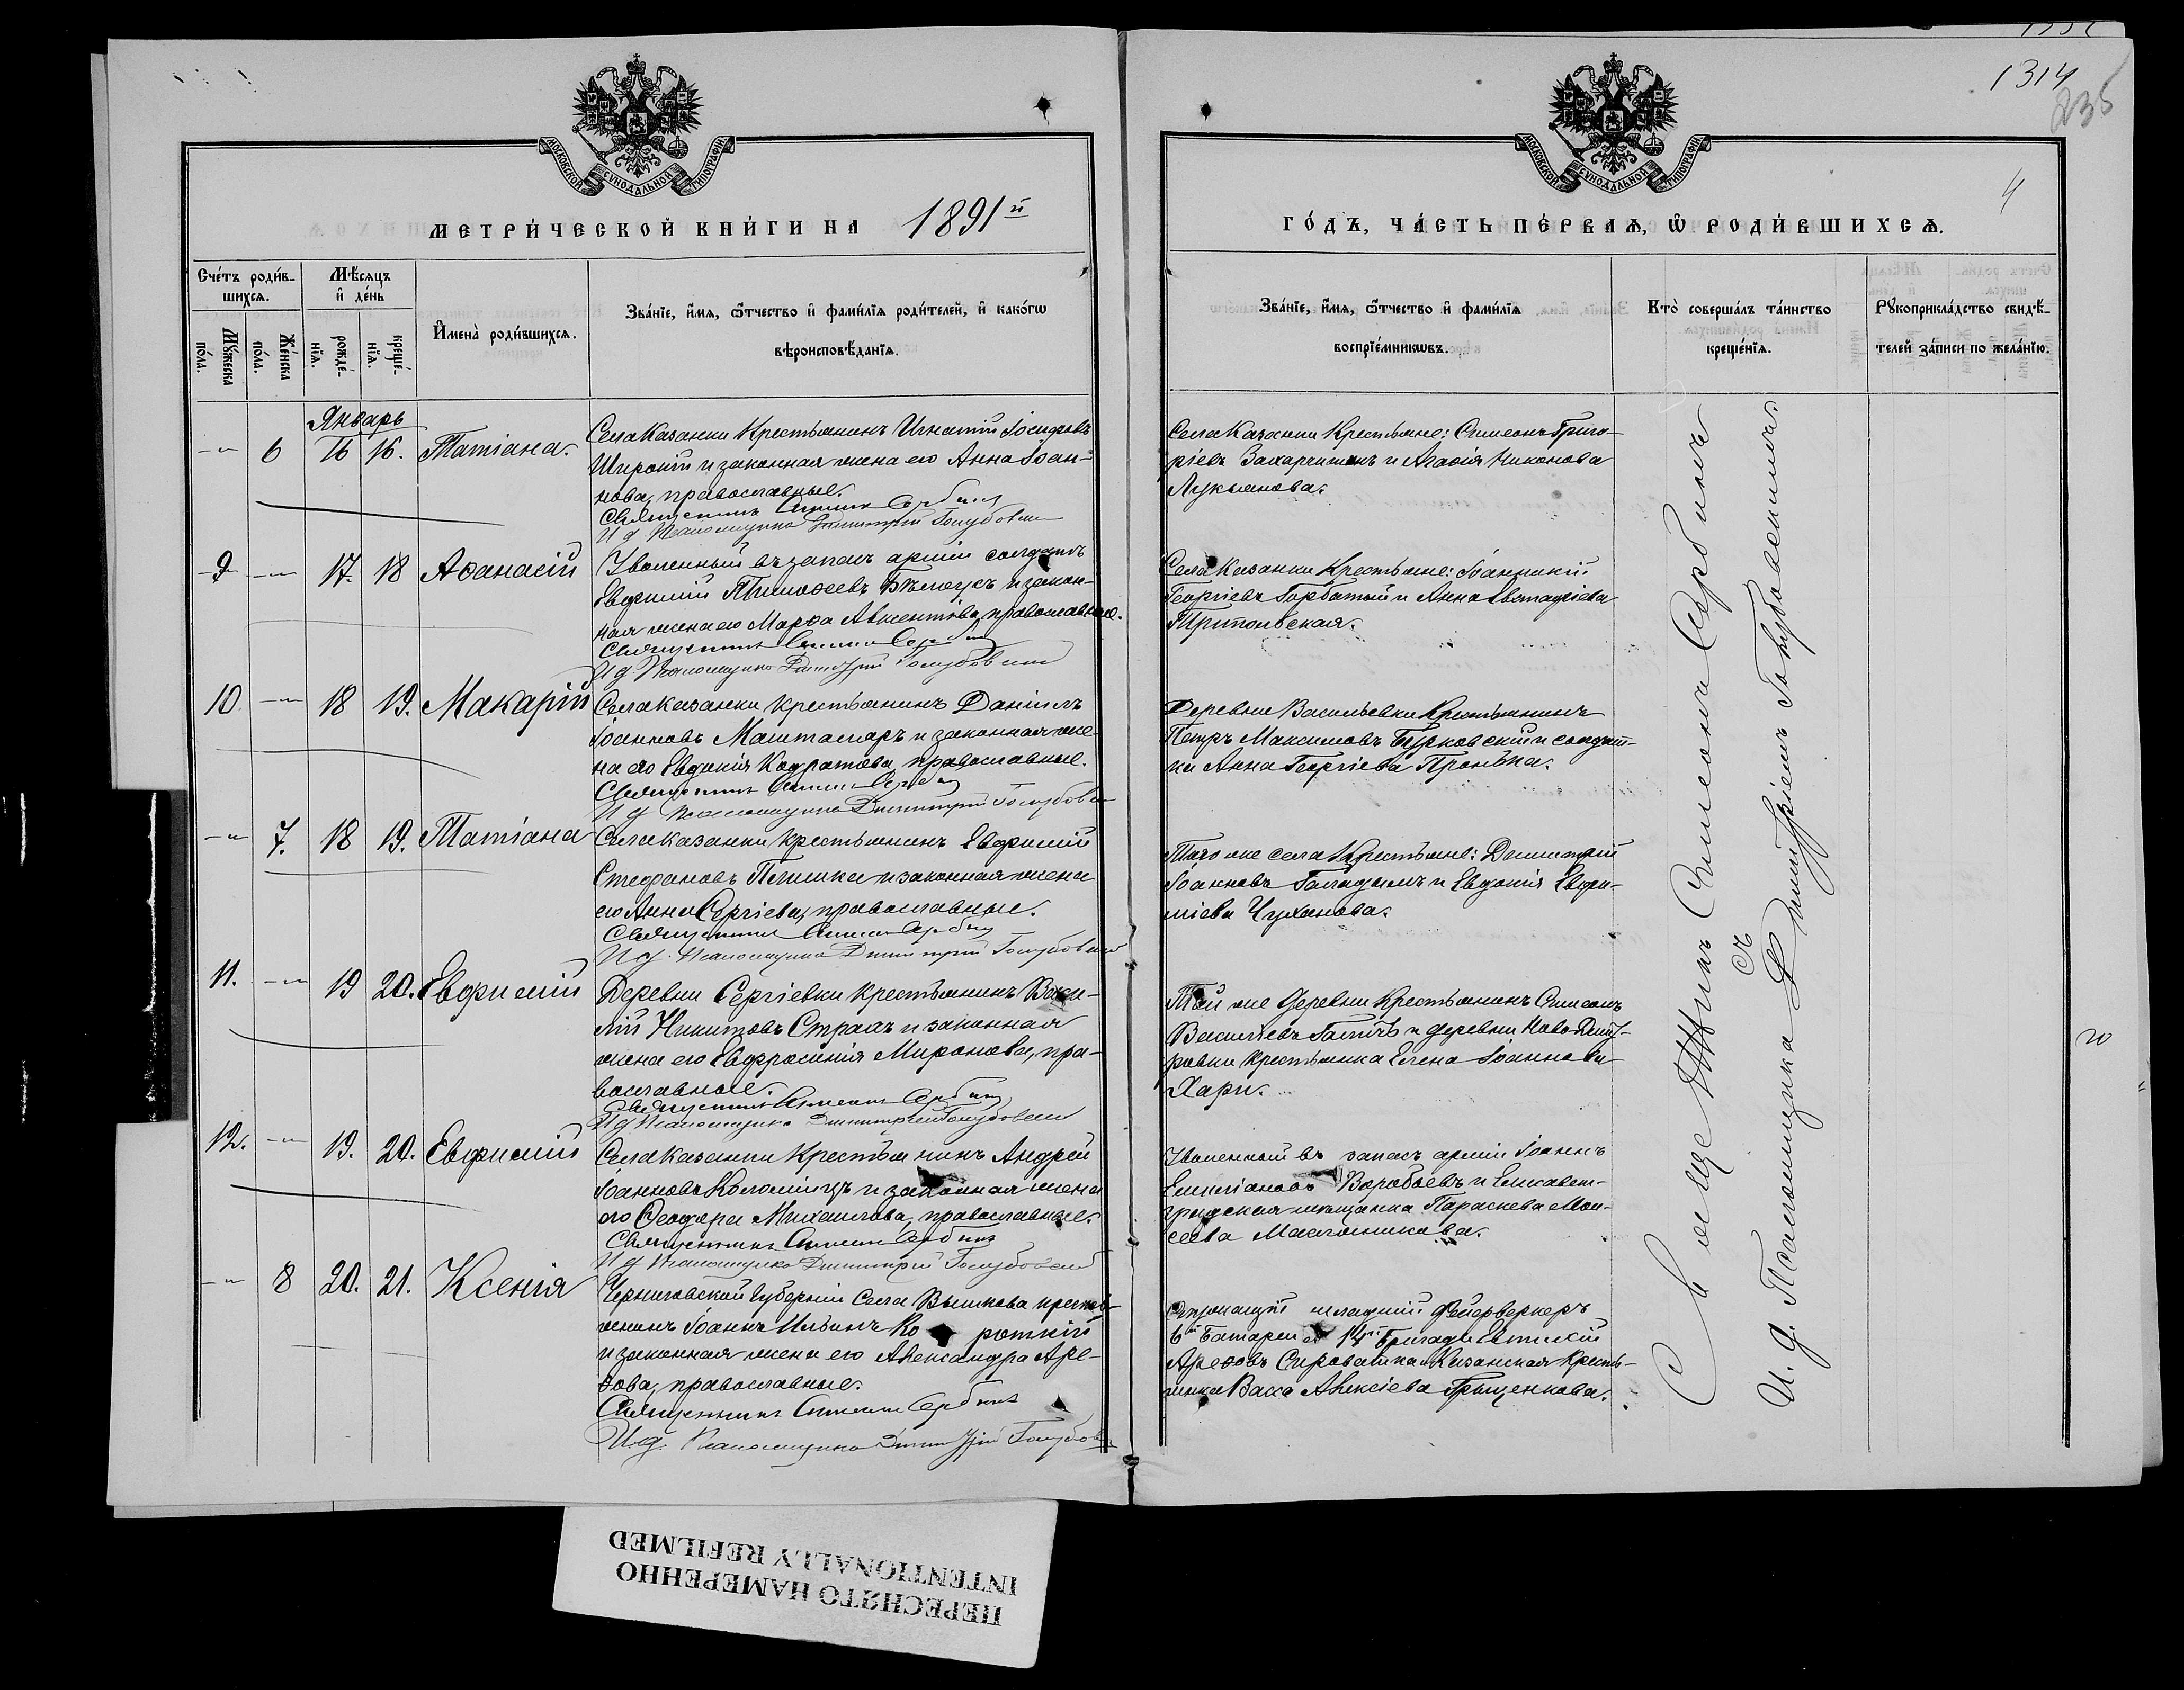 1314
235
4
МОСКОВСКОЙ СѴНОДАЛЬНОЙ ТИПОГРАФІИ.
МОСКОВСКОЙ СѴНОДАЛЬНОЙ ТИПОГРАФІИ.
МЕТРИ́ЧЕСКОЙ КНИ́ГИ НА 1891й
ГО́ДЪ, ЧА́СТЬ ПЕ́РВАѦ, Ѡ҆ РОДИ́ВШИХСѦ.
Сче́тъ роди́в-
шихсѧ.
Мꙋ́жеска по́ла.
Же́нска по́ла.
Мѣ́сѧцъ и҆ де́нь
рожде́-нїѧ.
креще́-нїѧ.
И҆мена̀ роди́вшихсѧ.
Зва́нїе, и҆́мѧ, ѻ҆́тчество и҆ фами́лїѧ роди́телей, и҆ како́гѡ
вѣроисповѣ́данїѧ.
Зва́нїе, и҆́мѧ, ѻ҆́тчество и҆ фами́лїѧ
воспрїе́мникѡвъ.
Кто̀ соверша́лъ та́инство
креще́нїѧ.
Рꙋкоприкла́дство свидѣ́-
телей за́писи по жела́нїю.
Январь
-"- 6 16 16. Татіана.
Села Казанки Крестьянинъ Игнатій Іосифовъ
Широкій и законная жена его Анна Іоан-
нова, православные.
Священникъ Симеонъ Сербинъ
И д Псаломщика Димитрій Голубовскій
Села Казанки Крестьяне: Симеонъ Григо-
ріевъ Захарчишинъ и Агаѳія Никонова
Лукьянова.
9 -"- 17. 18 Аѳанасій
Уволенный въ запасъ арміи солдатъ
Евфимій Тимоѳеевъ Бѣлоусъ и закон-
ная жена его Марѳа Авксентіева, православные.
Священникъ Симеонъ Сербинъ
И д. Псаломщика Димитрій Голубовскій
Села Казанки Крестьяне: Іоанникій
Георгіевъ Горбатый и Анна Евстафіева
Притольская.
10. -"- 18 19. Макарій
Села Казанки Крестьянинъ Даніилъ
Іоанновъ Машталяръ и законная же-
на его Евдокія Кодратова, православные.
Священникъ Симеонъ Сербинъ
И д Псаломщика Димитрій Голубовскій
Деревни Васильевки Крестьянинъ
Петръ Максимовъ Бурковскій и солдат-
ка Анна Георгіева Пронька.
-"- 7. 18 19. Татіана
Села Казанки Крестьянинъ Евфимій
Стефановъ Плишка и законная жена
его Анна Сергіева, православные.
Священникъ Симеонъ Сербинъ
И д. Псаломщика Димитрій Голубовскій
Того же села Крестьяне: Димитрій
Іоанновъ Галадымъ и Евдокія Евфи-
міева Чуханова.
11. -"- 19 20. Евфимій
Деревни Сергіевки Крестьянинъ Васи-
лій Никитовъ Страхъ и законная
жена его Евфросинія Миронова, пра-
вославные.
Священникъ Симеонъ Сербинъ
И д Псаломщика Димитрій Голубовскій
Той же деревни Крестьянинъ Симеонъ
Васильевъ Галичъ и деревни Ново-Дмит-
ровки Крестьянка Елена Іоаннова
Хари.
12. -"- 19. 20. Евфимій
Села Казанки Крестьянинъ Андрей
Іоанновъ Коломіецъ и законная жена
его Ѳеодора Михаилова, православные.
Священникъ Симеонъ Сербинъ
И д Псаломщика Димитрій Голубовскій
Уволенный въ запасъ арміи Іоаннъ
Емиліановъ Воробьевъ и Елисавет-
градская мѣщанка Параскева Мои-
сеева Масляникова.
-"- 8 20. 21. Ксенія
Черниговской Губерніи Села Вышкова кресть-
янинъ Іоаннъ Ильинъ Ко роткій
и законная жена его Александра Аре-
ѳова, православные.
Священникъ Симеонъ Сербинъ
И.д. Псаломщика Димитрій Голубовскій
младшій Фейерверкеръ
6й Батареи 14й Бригады Евтихій
Ареѳовъ Сировашка и Казанская Кресть-
янка Васса Алексіева Грыценкова.
Священникъ Симеонъ Сербинъ
съ
И. д. Псаломщика Димитріемъ Голубовскимъ.
ПЕРЕСНЯТО НАМЕРЕННО
INTENTIONALLY REFILMED